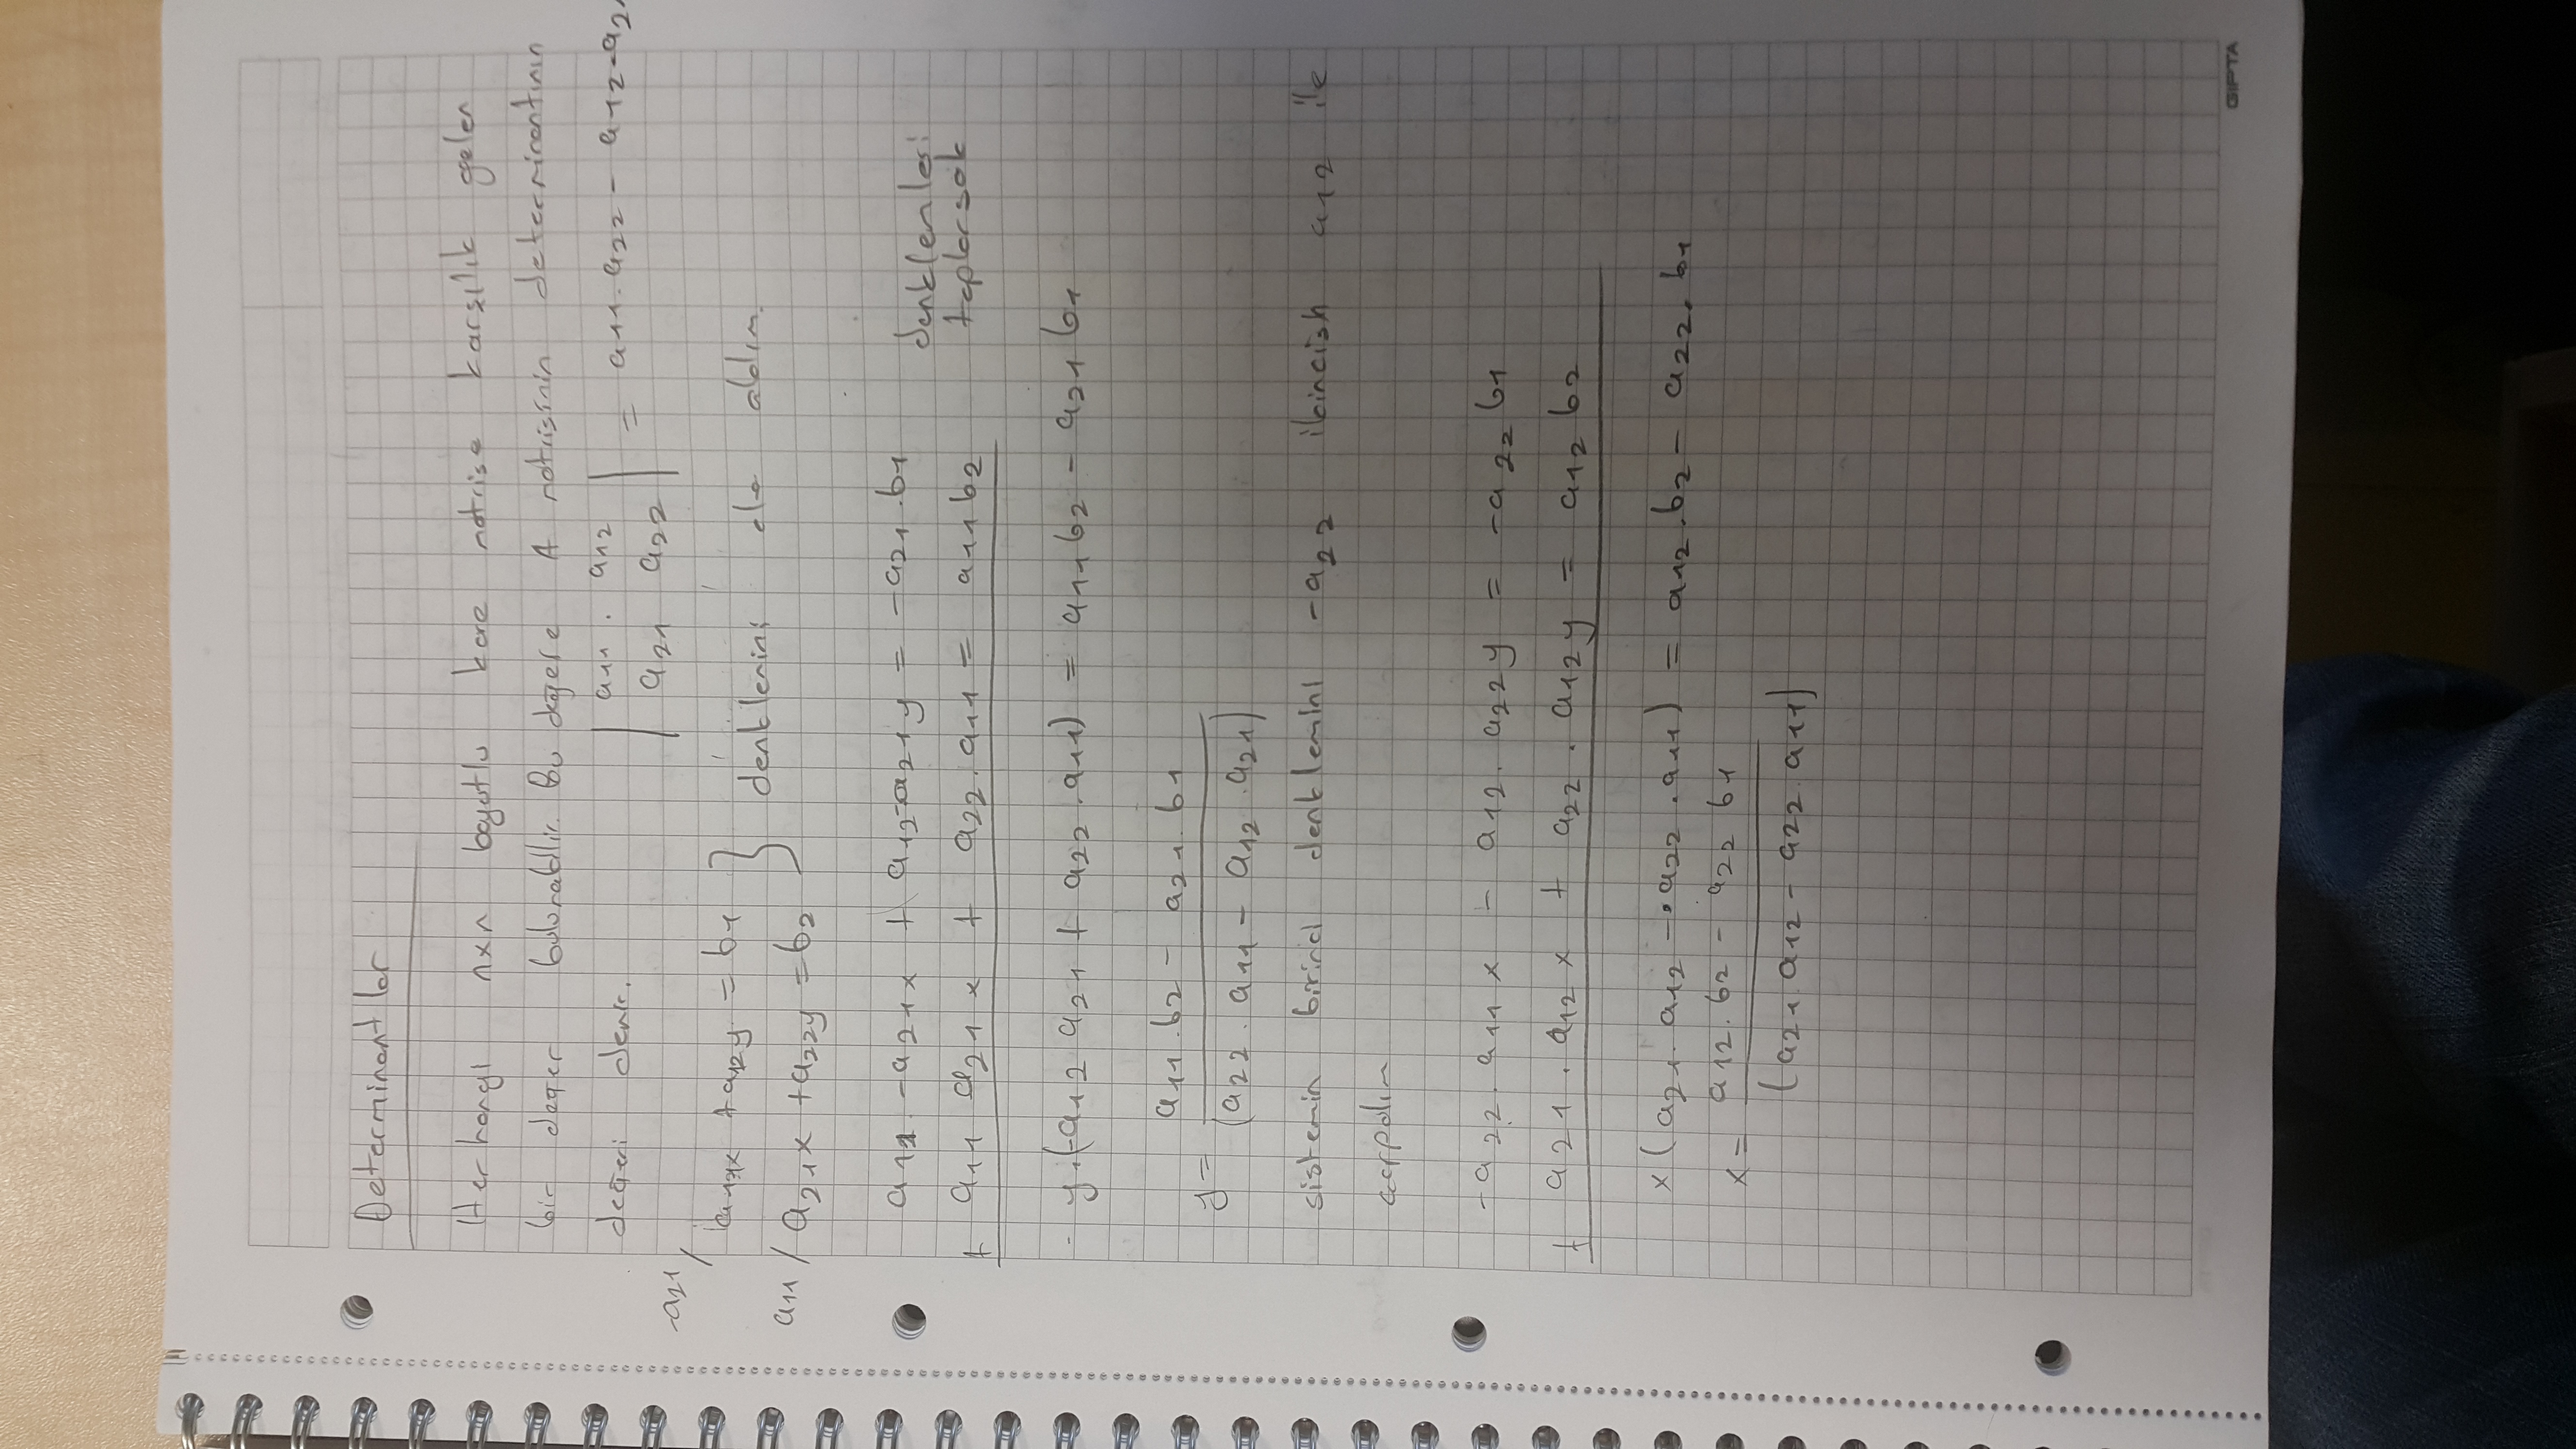 Determinantlar
Herhangi nxn boyutlu kare matrise karşılık gelen
bir değer bulunabilir. Bu değere A matrisinin determinantının
değeri denir. | a11 . a12 | = a11.a22 - a12.a21
| a21 a22 |
-a21 / a11x + a12y = b1 } denklemini ele alalım.
a11 / a21x + a22y = b2
a11 -a21x + a12-a21y = -a21.b1 denklemleri
+ a11 a21x + a22.a11 = a11b2 toplarsak
y.(-a12 a21 + a22.a11) = a11b2 - a21b1
y = a11.b2 - a21.b1
(a22.a11 - a12.a21)
sistemin birinci denklemini -a22 a12 ile
çarpalım
-a22.a11x - a12.a22y = -a22b1
+ a21.a12x + a22.a12y = a12b2
x(a21.a12 - a22.a11) = a12.b2 - a22.b1
x = a12.b2 - a22 b1
(a21.a12 - a22.a11)
GIPTA